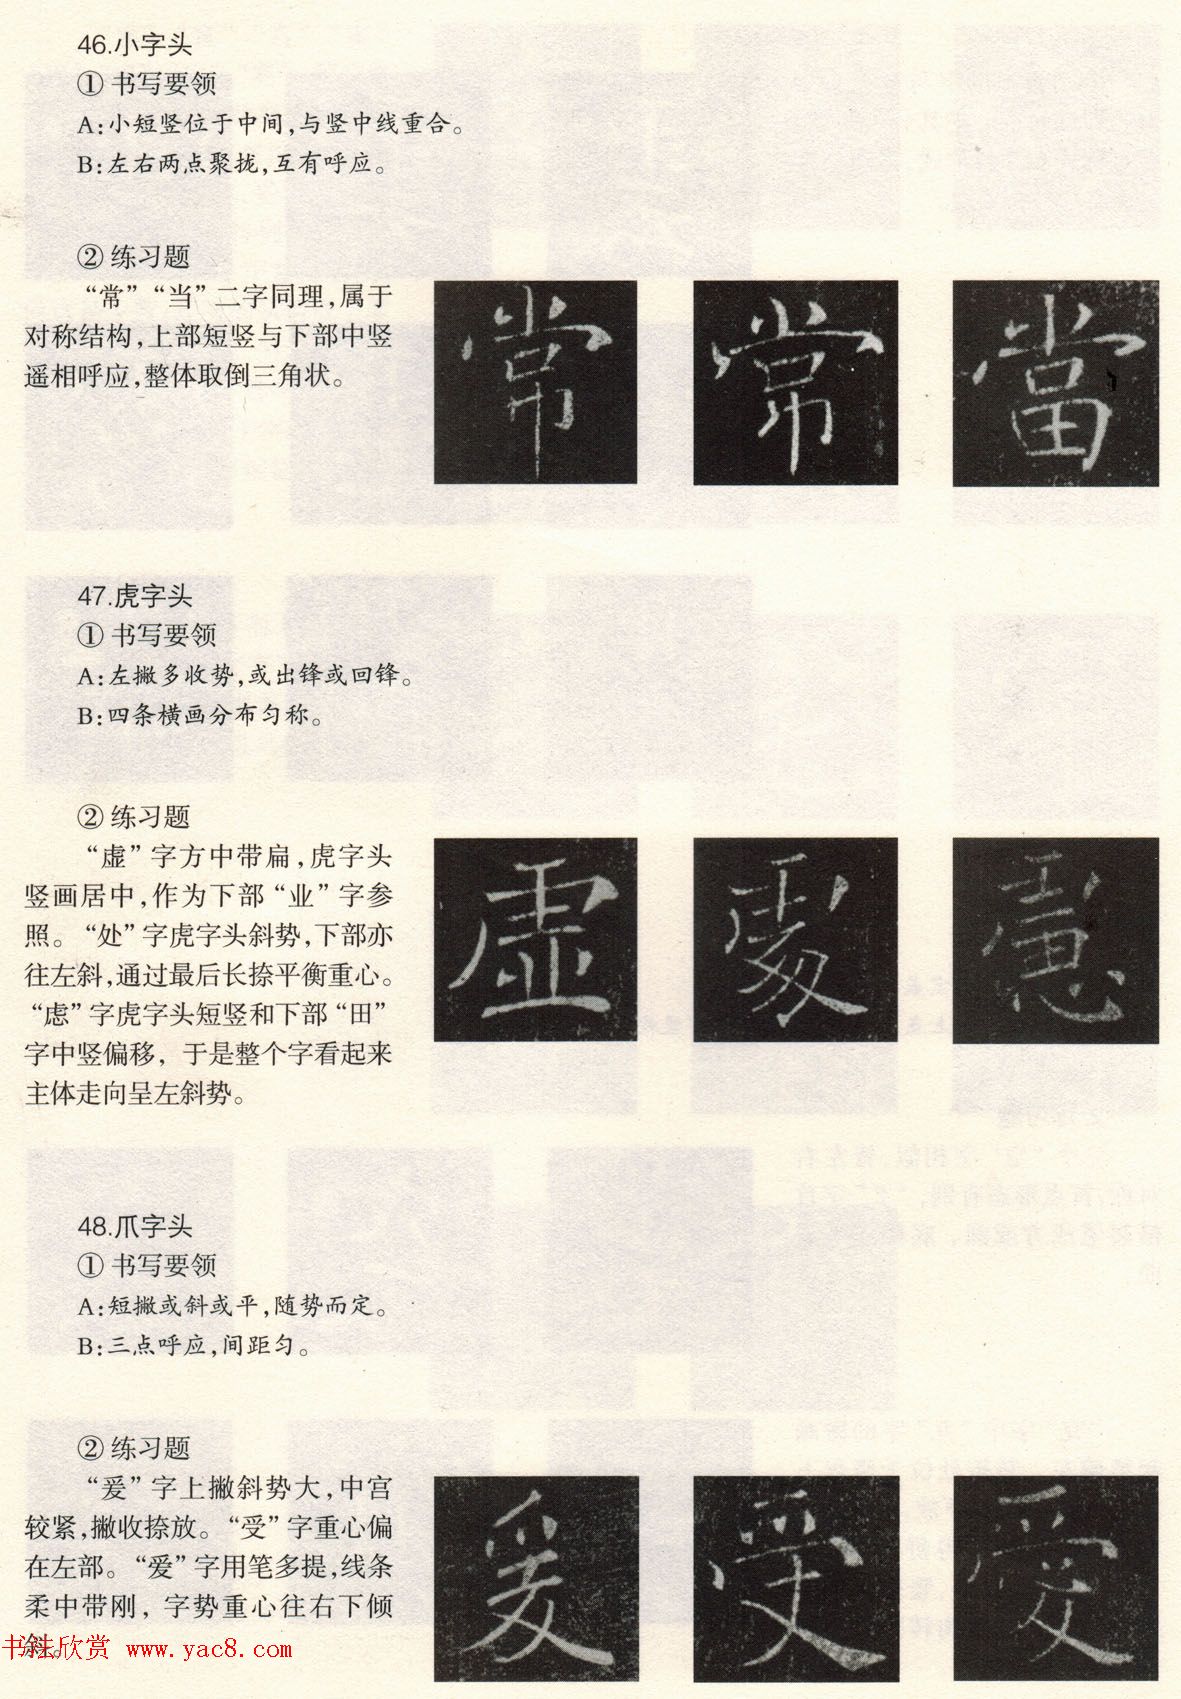 46.小字头
① 书写要领
A:小短竖位于中间,与竖中线重合。
B:左右两点聚拢,互有呼应。
② 练习题
“常”“当”二字同理,属于
对称结构,上部短竖与下部中竖
遥相呼应,整体取倒三角状。
常 常 當
47.虎字头
① 书写要领
A:左撇多收势,或出锋或回锋。
B:四条横画分布匀称。
② 练习题
“虚”字方中带扁,虎字头
竖画居中,作为下部“业”字参
照。“处”字虎字头斜势,下部亦
往左斜,通过最后长捺平衡重心。
“虑”字虎字头短竖和下部“田”
字中竖偏移,于是整个字看起来
主体走向呈左斜势。
虚 處 慮
48.爪字头
① 书写要领
A:短撇或斜或平,随势而定。
B:三点呼应,间距匀。
② 练习题
“爰”字上撇斜势大,中宫
较紧,撇收捺放。“受”字重心偏
在左部。“爱”字用笔多提,线条
柔中带刚,字势重心往右下倾
斜。
爰 受 愛
书法欣赏 www.yac8.com